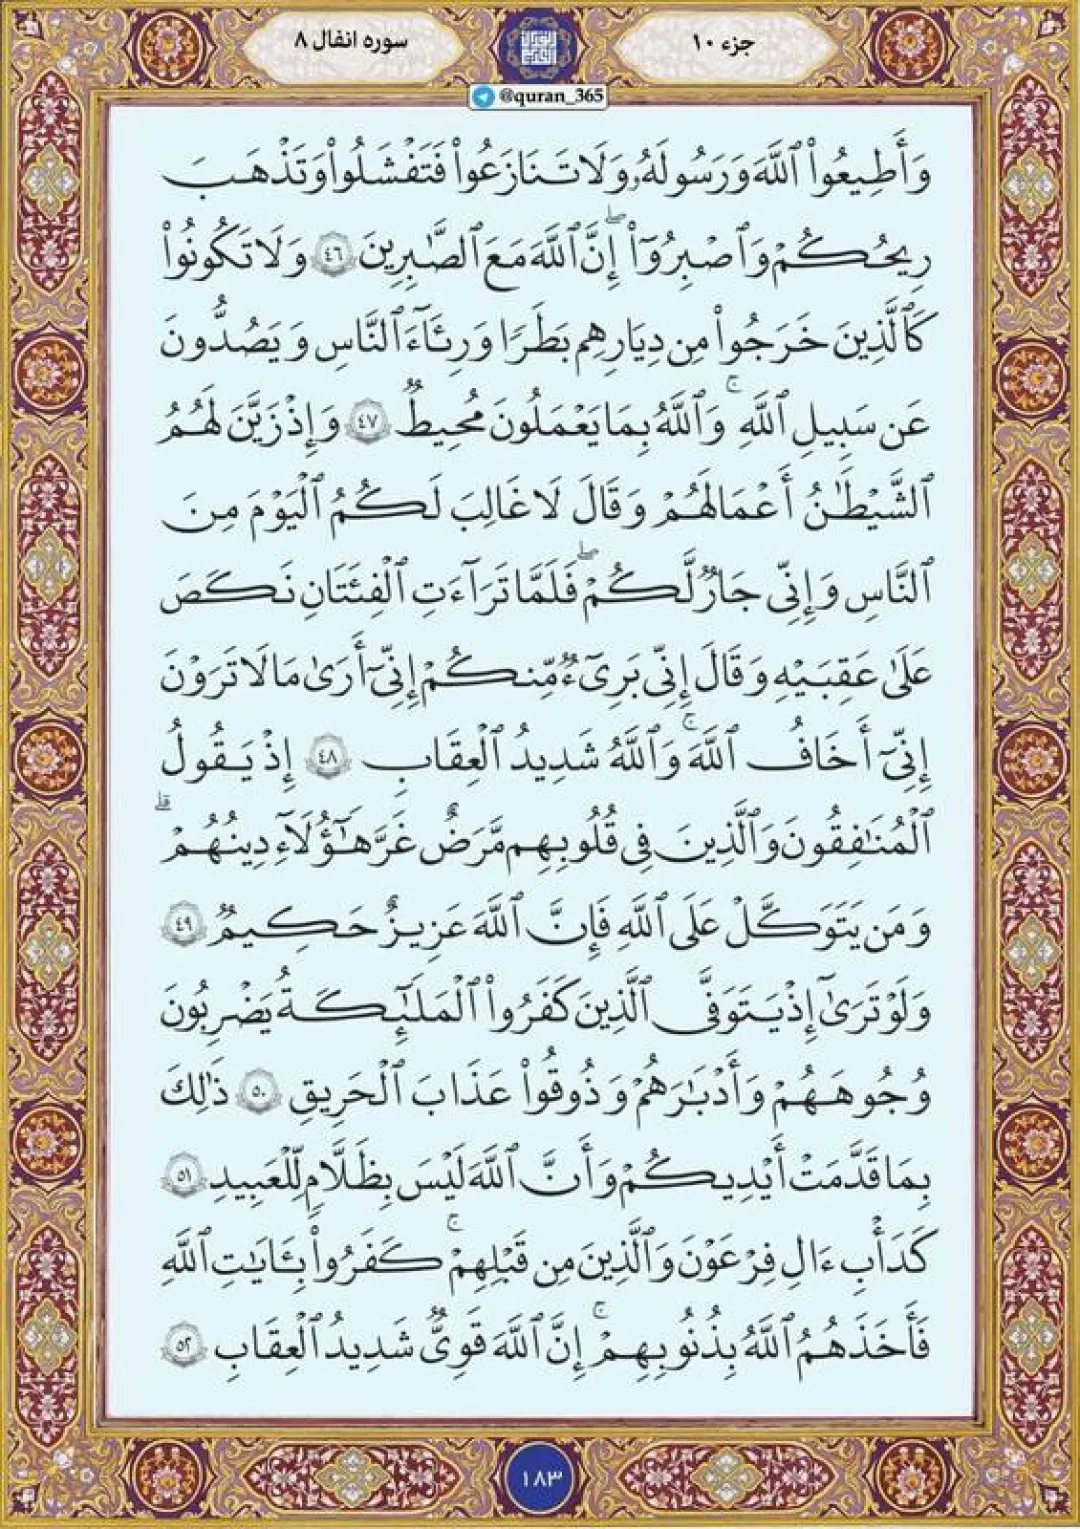 جزء ۱۰
سوره انفال ۸
@quran_365
وَأَطِيعُواْ ٱللَّهَ وَرَسُولَهُۥ وَلَا تَنَازَعُواْ فَتَفْشَلُواْ وَتَذْهَبَ
رِيحُكُمْ وَٱصْبِرُوٓاْۖ إِنَّ ٱللَّهَ مَعَ ٱلصَّـٰبِرِينَ ٤٦ وَلَا تَكُونُواْ
كَٱلَّذِينَ خَرَجُواْ مِن دِيَـٰرِهِم بَطَرًا وَرِئَآءَ ٱلنَّاسِ وَيَصُدُّونَ
عَن سَبِيلِ ٱللَّهِۚ وَٱللَّهُ بِمَا يَعْمَلُونَ مُحِيطٌ ٤٧ وَإِذْ زَيَّنَ لَهُمُ
ٱلشَّيْطَـٰنُ أَعْمَـٰلَهُمْ وَقَالَ لَا غَالِبَ لَكُمُ ٱلْيَوْمَ مِنَ
ٱلنَّاسِ وَإِنِّى جَارٌ لَّكُمْۖ فَلَمَّا تَرَآءَتِ ٱلْفِئَتَانِ نَكَصَ
عَلَىٰ عَقِبَيْهِ وَقَالَ إِنِّى بَرِىٓءٌ مِّنكُمْ إِنِّىٓ أَرَىٰ مَا لَا تَرَوْنَ
إِنِّىٓ أَخَافُ ٱللَّهَۚ وَٱللَّهُ شَدِيدُ ٱلْعِقَابِ ٤٨ إِذْ يَقُولُ
ٱلْمُنَـٰفِقُونَ وَٱلَّذِينَ فِى قُلُوبِهِم مَّرَضٌ غَرَّ هَـٰٓؤُلَآءِ دِينُهُمْۗ
وَمَن يَتَوَكَّلْ عَلَى ٱللَّهِ فَإِنَّ ٱللَّهَ عَزِيزٌ حَكِيمٌ ٤٩
وَلَوْ تَرَىٰٓ إِذْ يَتَوَفَّى ٱلَّذِينَ كَفَرُواْ ٱلْمَلَـٰٓئِكَةُ يَضْرِبُونَ
وُجُوهَهُمْ وَأَدْبَـٰرَهُمْ وَذُوقُواْ عَذَابَ ٱلْحَرِيقِ ٥٠ ذَٰلِكَ
بِمَا قَدَّمَتْ أَيْدِيكُمْ وَأَنَّ ٱللَّهَ لَيْسَ بِظَلَّـٰمٍ لِّلْعَبِيدِ ٥١
كَدَأْبِ ءَالِ فِرْعَوْنَ وَٱلَّذِينَ مِن قَبْلِهِمْۚ كَفَرُواْ بِـَٔايَـٰتِ ٱللَّهِ
فَأَخَذَهُمُ ٱللَّهُ بِذُنُوبِهِمْۚ إِنَّ ٱللَّهَ قَوِىٌّ شَدِيدُ ٱلْعِقَابِ ٥٢
۱۸۳